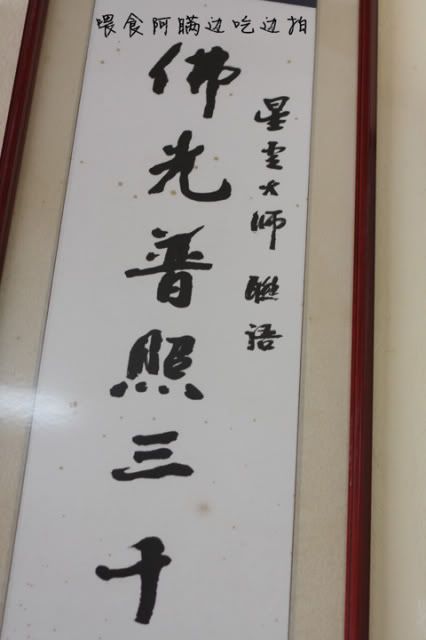 喂食阿瞒边吃边拍
星雲大师 聯语
佛光普照三千